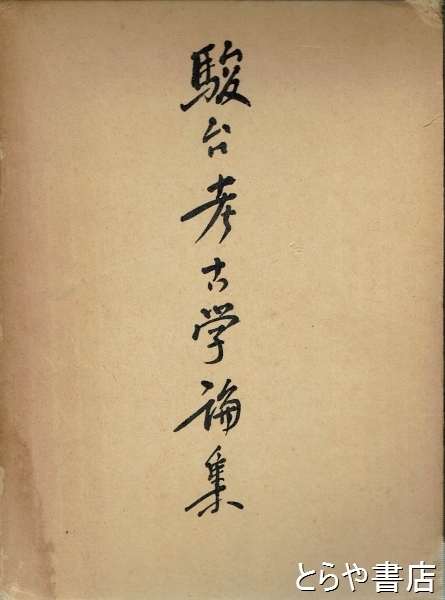 駿台考古学論集
とらや書店